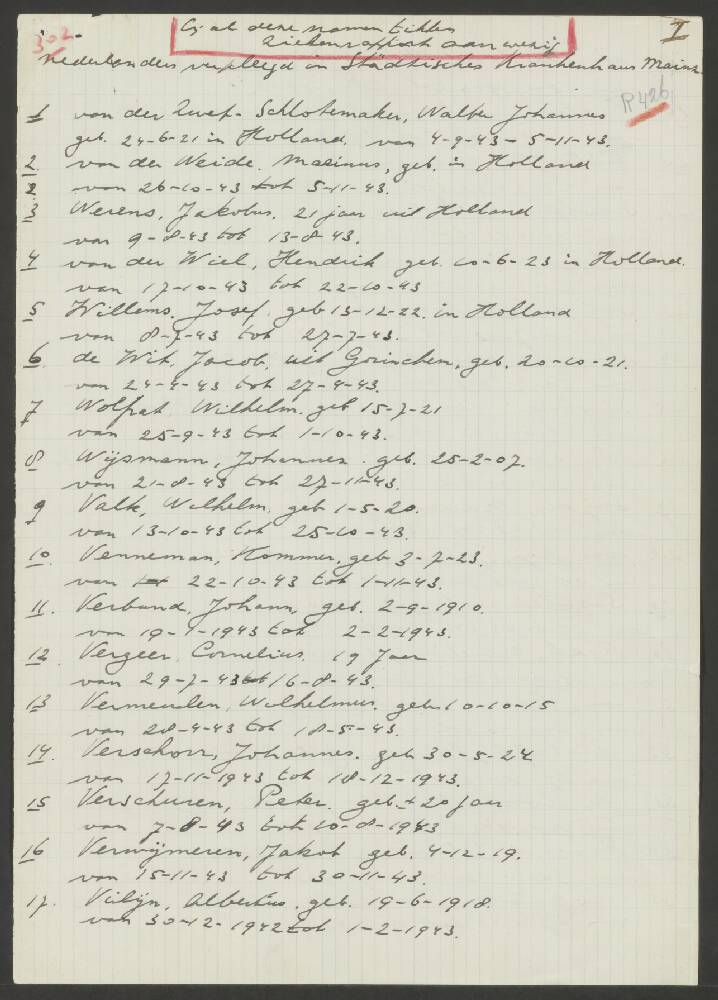 Cf al deze namen
ziekenrapport aanwezig
I
302
Nederlanders verpleegd in Städtisches Krankenhaus Mainz
R 426
1 van der Zwep-Schlotemaker, Walter Johannes
geb. 24-6-21 in Holland. van 4-9-43 - 5-11-43.
2. van der Weide. Marinus, geb. in Holland
2. van 26-10-43 tot 5-11-43.
3 Werens, Jakobus. 21 jaar uit Holland
van 9-8-43 tot 13-8-43.
4 van der Wiel, Hendrik geb. 10-6-23 in Holland.
van 17-10-43 tot 22-10-43
5 Willems. Josef. geb 13-12-22. in Holland
van 8-7-43 tot 27-7-43.
6. de Wit, Jacob. uit Gorinchem, geb. 20-10-21.
van 24-4-43 tot 27-4-43.
7 Wolfrat Wilhelm. geb 15-7-21
van 25-9-43 tot 1-10-43.
8 Wijsmann, Johannes. geb. 25-2-07.
van 21-8-43 tot 27-11-43.
9 Valk, Wilhelm. geb 1-5-20.
van 13-10-43 tot 25-10-43.
10. Venneman, Hommer, geb 3-7-23.
van 22-10-43 tot 1-11-43.
11. Verband, Johann, geb. 2-9-1910.
van 19-1-1943 tot 2-2-1943.
12 Vergeer, Cornelius. 19 Jaar
van 29-7-43 tot 16-8-43.
13 Vermeulen, Wilhelmus. geb 10-10-15
van 28-4-43 tot 18-5-43.
14. Verschorr, Johannes. geb 30-5-24
van 17-11-1943 tot 18-12-1943.
15 Verschuren, Peter. geb ± 20 Jaar
van 7-8-43 tot 10-8-1943
16 Verwijmeren, Jakob geb. 4-12-19.
van 15-11-43 tot 30-11-43.
17. Vilijn, Albertus. geb. 19-6-1918.
van 30-12-1942 tot 1-2-1943.